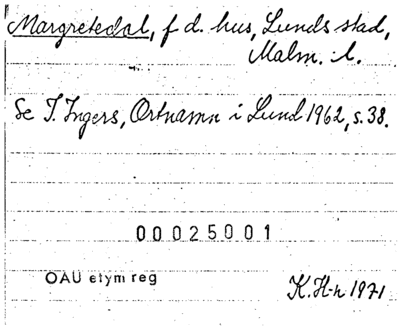 Margretedal, f d. hus, Lunds stad,
Malm. l.
Se I. Ingers, Ortnamn i Lund 1962, s. 38.
00025001
OAU etym reg
K. H-n 1971